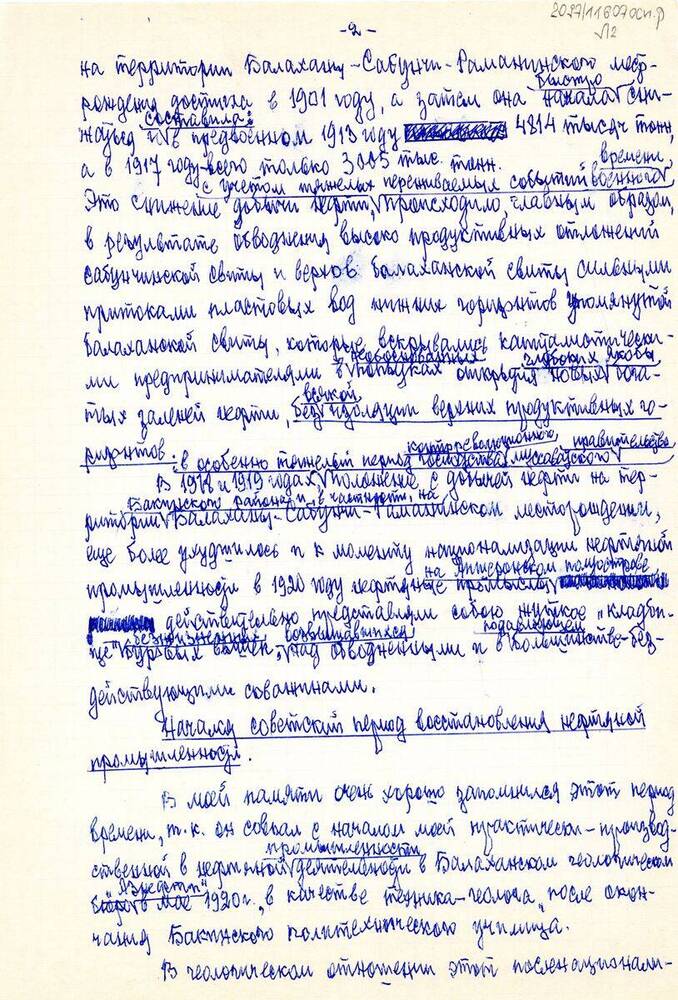 2027/11607 осн.ф
Л2
-2-
на территории Балаханы-Сабунчи-Раманинского место-
быстро
рождения достигла в 1901 году, а затем она начала сни-
составила:
жаться и в предвоенном 1913 году 4814 тысяч тонн,
а в 1917 году-всего только 3005 тыс. тонн.
времени,
с учетом тяжелых переживаемых событий военного
Это снижение добычи нефти, происходило, главным образом,
в результате обводнения высоко продуктивных отложений
сабунчинской свиты и верхов балаханской свиты сильными
притоками пластовых вод нижних горизонтов упомянутой
Балаханской свиты, которые вскрывались капиталистически-
необоснованных глубоких якобы
ми предпринимателями в попытках открытия новых бога-
всякой
тых залежей нефти, без изоляции верхних продуктивных го-
контрреволюционного правительства
ризонтов: в особенно тяжелый период господства муссаватского
В 1918 и 1919 годах положение с добычей нефти на тер-
Бакинского района и, в частности, на
ритории Балаханы-Сабунчи-Раманинском месторождении,
еще более ухудшилось и к моменту национализации нефтяной
на Апшеронском полуострове
промышленности в 1920 году нефтяные промысла
действительно представляли собою жуткое „кладби-
безжизненных возвышавшихся подавляющем
ще" буровых вышек, над обводненными и в большинстве-без-
действующими скважинами.
Начало советский период восстановления нефтяной
промышленности.
В моей памяти очень хорошо запомнился этот период
времени, т.к. он совпал с началом моей практически-производ-
промышленности
ственной в нефтяной деятельности в Балаханском геологическом
бюро в мае 1920г., в качестве техника-геолога, после окон-
чания Бакинского политехнического училища.
В геологическом отношении этот посленационали-